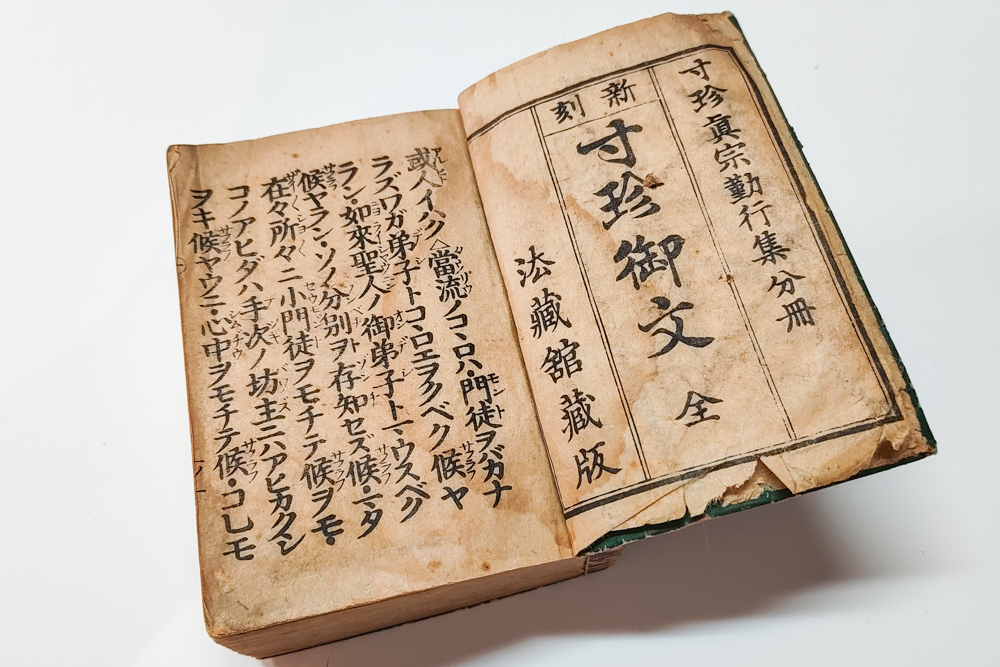 寸珍眞宗勤行集分冊
新刻
寸珍御文 全
法藏舘藏版
或人イハク當流ノコヽロハ・門徒ヲバカナ
ラズワガ弟子トコヽロエヲクベク候ヤ
ラン・如來聖人ノ御弟子トマウスベク
候ヤラン・ソノ分別ヲ存知セズ候・マタ
在々所々ニ小門徒ヲモチテ候ヲモ・
コノアヒダハ手次ノ坊主ニハアヒカクシ
ヲキ候ヤウニ・心中ヲモチテ候・コレモ